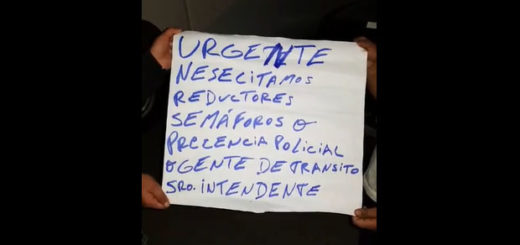 URGENTE
NESECITAMOS
REDUCTORES
SEMÁFOROS O
PRECENCIA POLICIAL
O GENTE DE TRANSITO
SRO. INTENDENTE